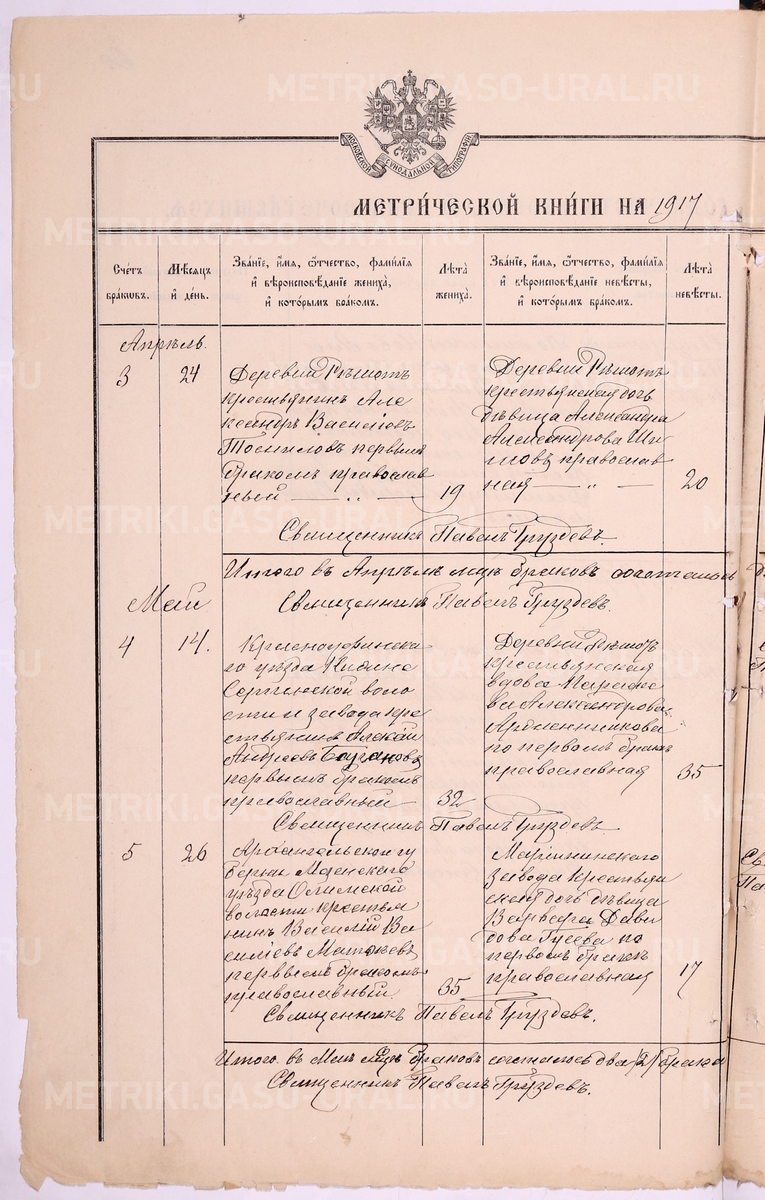 МОСКОВСКОЙ СѴНОДАЛЬНОЙ ТИПОГРАФІИ
МЕТРИ́ЧЕСКОЙ КНИ́ГИ НА 1917
Сче́тъ бра́кωвъ.
Мѣ́сѧцъ и҆ де́нь.
Зва́нїе, и҆́мѧ, ѻ҆́тчество, фамѝлїѧ и҆ вѣроисповѣ́данїе жениха̀, и҆ кото́рымъ бра́комъ.
Лѣ́та жениха̀.
Зва́нїе, и҆́мѧ, ѻ҆́тчество, фамѝлїѧ и҆ вѣроисповѣ́данїе невѣ́сты, и҆ кото́рымъ бра́комъ.
Лѣ́та невѣ́сты.
Апрѣль.
3
24
Деревни Рѣшотъ
крестьянинъ Але
ксандръ Василіевъ
первымъ
бракомъ православ
ный
19
Деревни Рѣшотъ
крестьянская дочь
дѣвица Александра
Александрова
православ
ная
20
Священникъ Павелъ Груздевъ.
Итого въ Апрѣлѣ м-цѣ браковъ
Священникъ Павелъ Груздевъ.
Май
4
14.
Красноуфимска
го уѣзда Нижне
Сергинской воло
сти и завода кре
стьянинъ Алексѣй
Андреевъ
первымъ бракомъ
православный
32
Деревни Рѣшотъ
крестьянская
вдова Параске
ва Александрова
по первомъ бракѣ
православная
35
Священникъ Павелъ Груздевъ
5
26
Архангельской гу
берніи Мезенскаго
уѣзда
волости крестья
нинъ Василій Ва
силіевъ
первымъ бракомъ
православный.
35
Маріинскаго
завода крестьян
ская дочь дѣвица
Дави
дова Гусева по
первом бракѣ
православная
17
Священникъ Павелъ Груздевъ.
Итого въ Маѣ м-цѣ браковъ состоялось два /2/ брака
Священникъ Павелъ Груздевъ.
METRIKI.GASO-URAL.RU